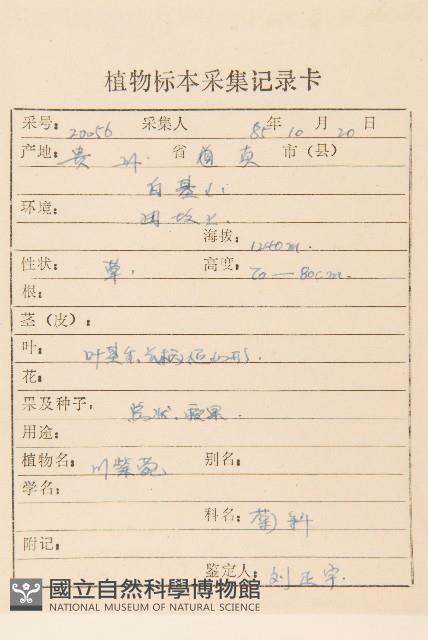 植物标本采集记录卡
采号：20056 采集人 85年10月20日
产地：贵州省道真市（县）
白基山
环境：田坎上
海拨：1240m.
性状：草. 高度：70—80cm.
根：
茎（皮）：
叶：叶基生
花：
果及种子：总状.瘦果
用途：
植物名：川紫菀 别名：
学名：
科名：菊科
附记：
鉴定人：刘正宇
國立自然科學博物館
NATIONAL MUSEUM OF NATURAL SCIENCE